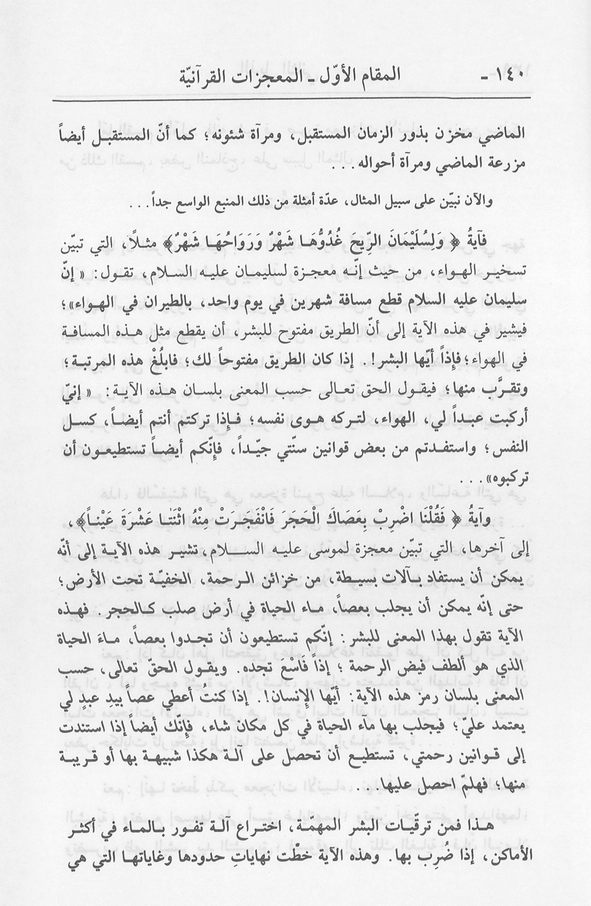 ١٤٠ - المقام الأوّل - المعجزات القرآنيّة
الماضي مخزن بذور الزمان المستقبل، ومرآة شئونه؛ كما أنّ المستقبل أيضاً
مزرعة الماضي ومرآة أحواله...
والآن نبيّن على سبيل المثال، عدّة أمثلة من ذلك المنبع الواسع جداً...
فآيةُ ﴿ وَلِسُلَيْمَانَ الرِّيحَ غُدُوُّهَا شَهْرٌ وَرَوَاحُهَا شَهْرٌ﴾ مثلاً، التي تبيّن
تسخير الهواء، من حيث إنّه معجزة لسليمان عليه السلام، تقول: « إنّ
سليمان عليه السلام قطع مسافة شهرين في يوم واحد، بالطيران في الهواء»؛
فيشير في هذه الآية إلى أنّ الطريق مفتوح للبشر، أن يقطع مثل هذه المسافة
في الهواء؛ فإذاً أيّها البشر!. إذا كان الطريق مفتوحاً لك؛ فابلُغْ هذه المرتبة؛
وتقرَّب منها؛ فيقول الحق تعالى حسب المعنى بلسان هذه الآية: « إنيّ
أركبت عبداً لي، الهواء، لتركه هوى نفسه؛ فإذا تركتم أنتم أيضاً، كسل
النفس؛ واستفدتم من بعض قوانين سنّتي جيّداً، فإنّكم أيضاً تستطيعون أن
تركبوه»...
وآيةُ ﴿ فَقُلْنَا اضْرِبْ بِعَصَاكَ الْحَجَرَ فَانْفَجَرَتْ مِنْهُ اثْنَتَا عَشْرَةَ عَيْناً﴾،
إلى آخرها، التي تبيّن معجزة لموسى عليه السلام، تشير هذه الآية إلى أنّه
يمكن أن يستفاد بآلات بسيطة، من خزائن الرحمة، الخفيّة تحت الأرض؛
حتى إنّه يمكن أن يجلب بعصاً، ماء الحياة في أرض صلب كالحجر. فهذه
الآية تقول بهذا المعنى للبشر: إنّكم تستطيعون أن تجدوا بعصاً، ماءَ الحياة
الذي هو ألطف فيض الرحمة ؛ إذاً فاسْعَ تجده. ويقول الحقّ تعالى، حسب
المعنى بلسان رمز هذه الآية: أيّها الإنسان!. إذا كنتُ أعطي عصاً بيدِ عبدٍ لي
يعتمد عليّ؛ فيجلب بها ماء الحياة في كل مكان شاء، فإنّك أيضاً إذا استندت
إلى قوانين رحمتي، تستطيع أن تحصل على آلة هكذا شبيهة بها أو قريبة
منها؛ فهلمّ احصل عليها...
هذا فمن ترقّيات البشر المهمّة، اختراع آلة تفور بالماء في أكثر
الأماكن، إذا ضُرِب بها. وهذه الآية خطّت نهاياتِ حدودها وغاياتها التي هي